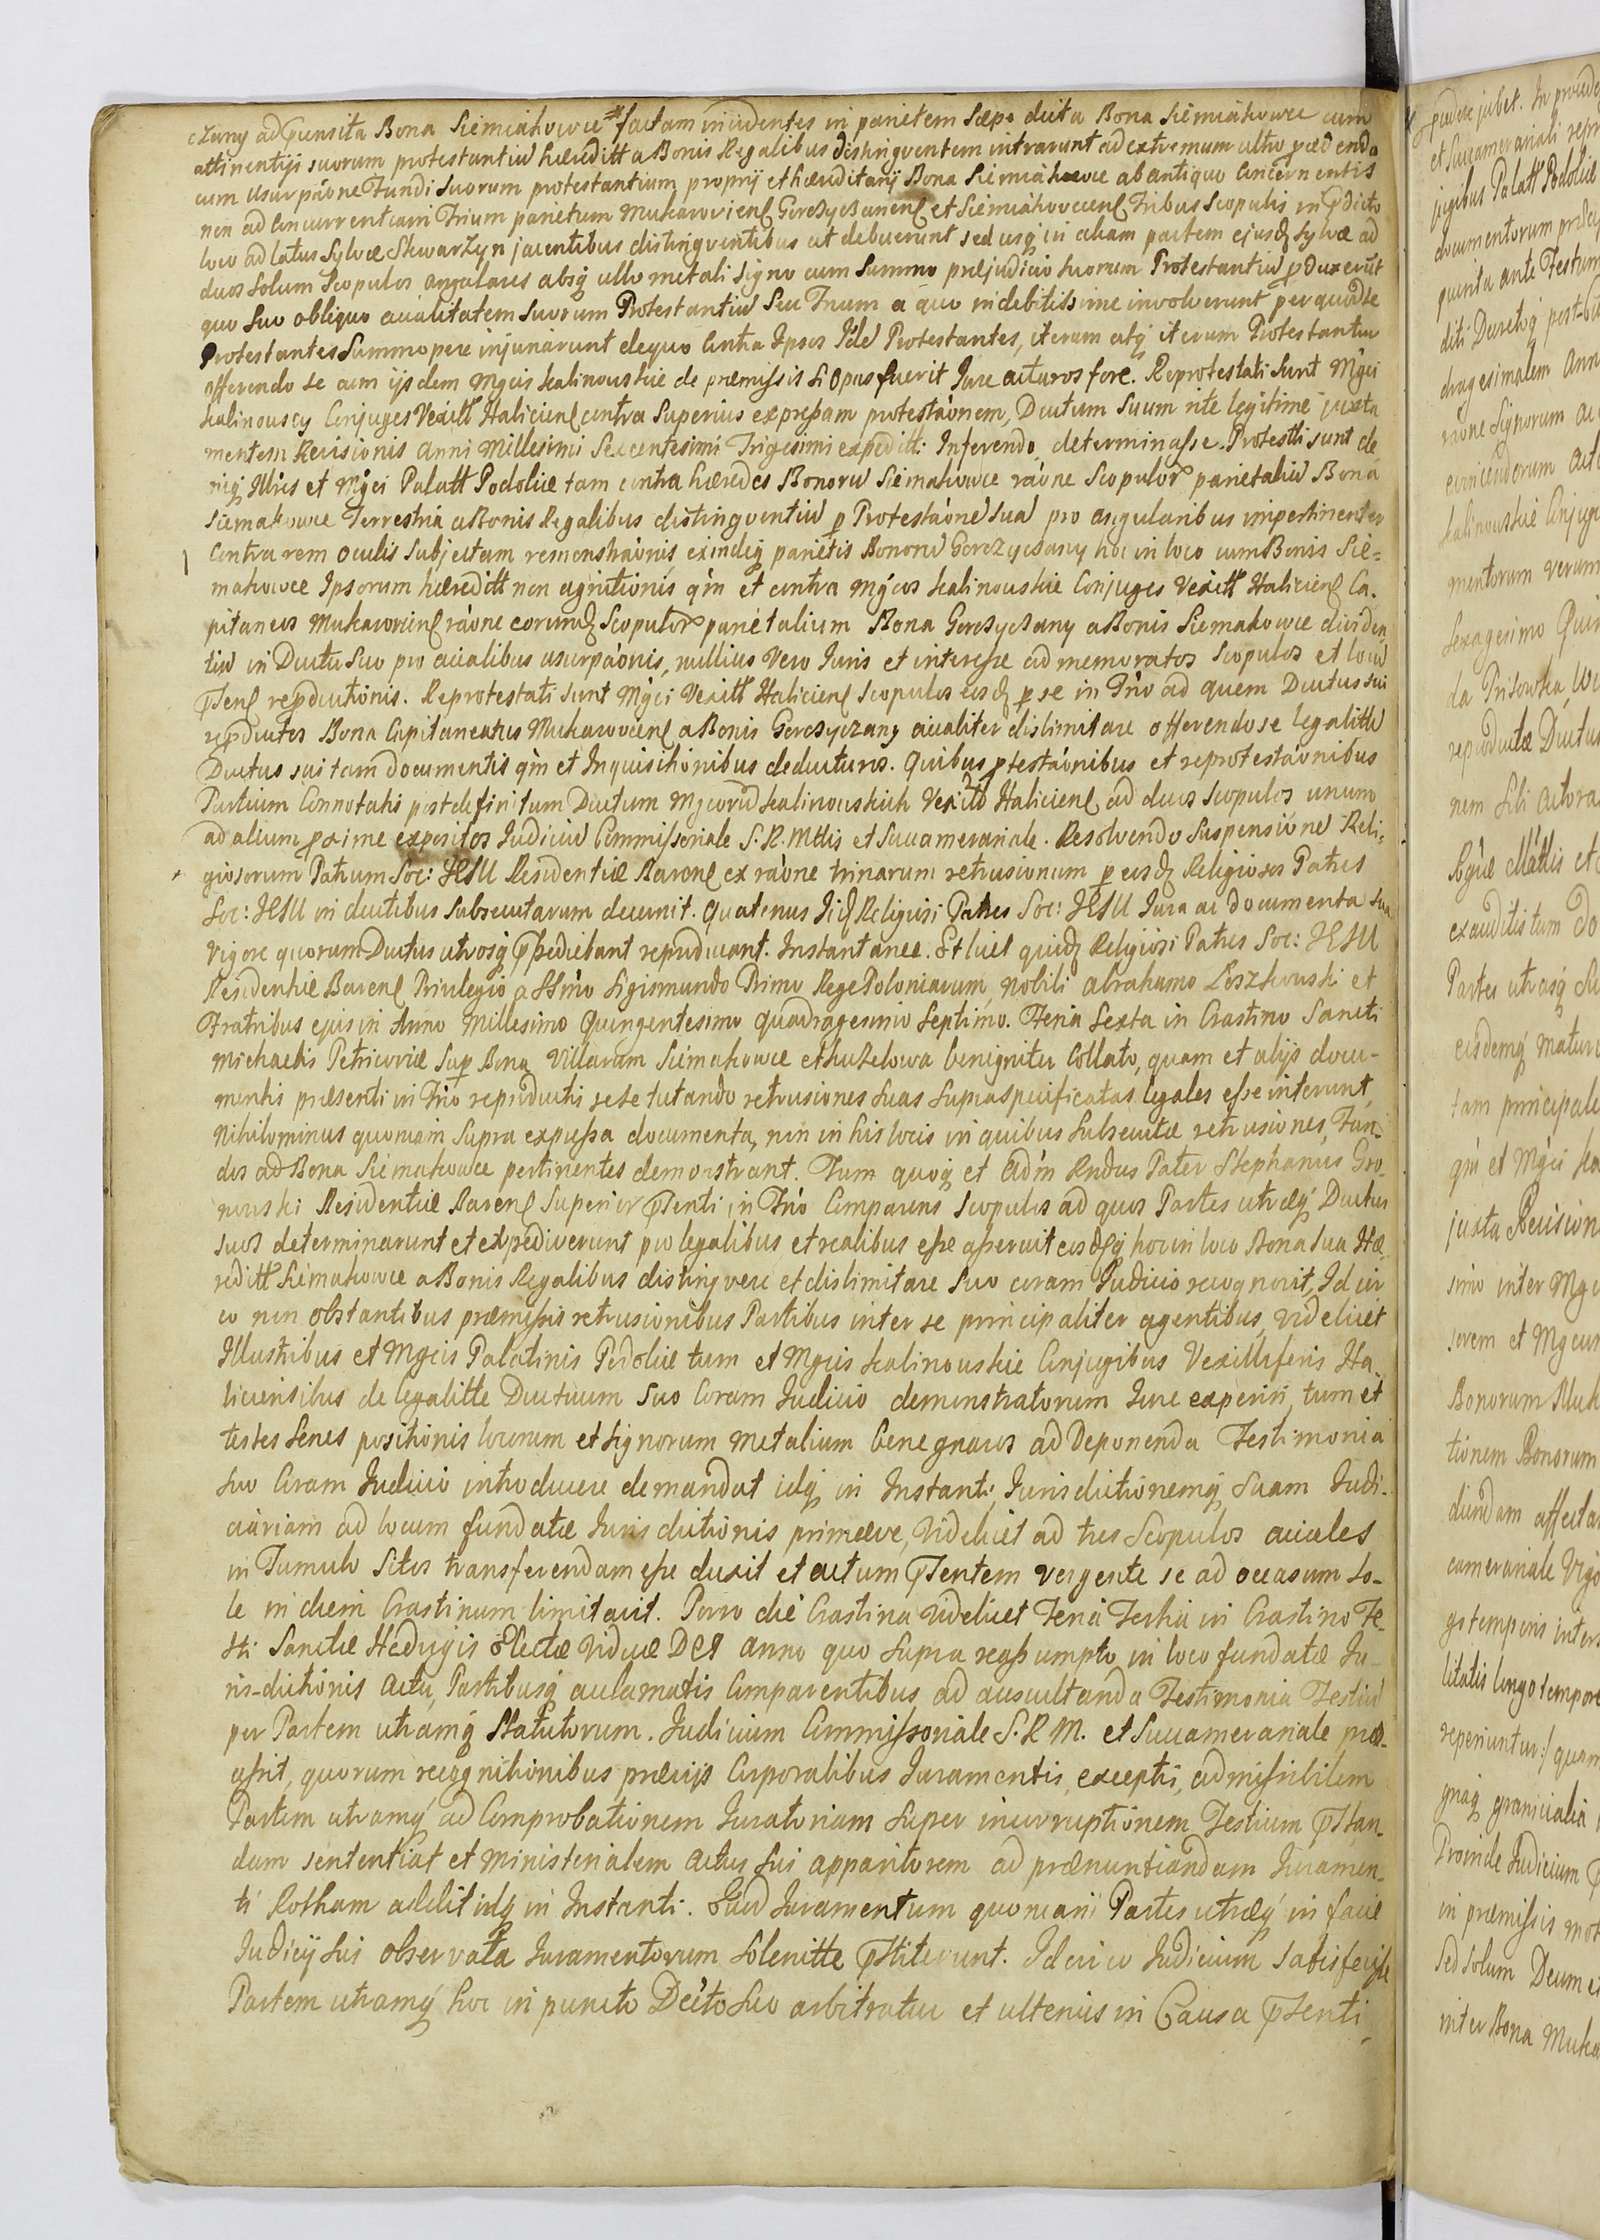 czany ad Gunsita Bona Siemiakowce factam incidentes in parietem Sæpe dicta Bona Siemiakowce cum
attinentijs suorum protestantiũ hæreditt a Bonis Regalibus distingventem intrarunt ad extremum ultro p̱cedendo
cum Usurpaõne Fundi Suorum protestantium proprij et hæreditarij Bona Siemiakowce ab antiquo Concernentis
non ad Concurrentiam Trium parietum Mukarovienß Gorczyczanenß et Siemiakovcenß Tribus Scopulis in p̱dicto
loco ad latus Sylvæ Skwarzyn jacentibus distingventibus ut debuerunt sed usq̃ in aliam partem ejusd̃ Sylvæ ad
duos Solum Scopulos angulares absq̃ ullo metali signo cum Summo præjudicio Suorum Protestantiũ p̱duxerũt
quo Suo obliquo acialitatem Suorum Protestantiũ Seu Trium a quo indebitissime involverunt per quod se
Protestantes Summopere injuriarunt de quo Contra Ipsos Iĩd Protestantes, iterum atq̃ iterum Protestantur
offerendo se cum ijsdem Mgcis Kalinouskie de præmissis si Opus fuerit Jure acturos fore. Reprotestati Sunt Mgci
Kalinouscy Conjuges Vexill Halicienß contra Superius expressam protestaõnem, Ductum Suum rite legitime juxta
mentem Revisionis Anni Millesimi Sexcentesimi Trigesimi expeditt: Inferendo determinasse. Protestti sunt de-
niq̃ Illres et Mgci Palatt Podoliæ tam contra hæredes Bonorũ Siemakowce raõne Scopulor̃ parietaliũ Bona
Siemakowce Terrestria a Bonis Regalibus distingventiũ p̱ Protestaõne Sua pro angularibus impertinenter
Contra rem Oculis Subjectam remonstraõnis, exindeq̃ parietis Bonorũ Gorczyczany hoc in loco cum Bonis Sie-
makowce Ipsorum hæreditt non agnitionis qm̃ et contra Mgcos Kalinouskie Conjuges Vexill Halicienß Ca-
pitaneos Mukarovienß raõne eorund̃ Scopulor̃ parietalium Bona Gorczyczany a Bonis Siemakowce dividen
tiũ in Ductu Suo pro acialibus usurpaõnis, nullius Vero Juris et interesse ad memoratos Scopulos et locũ
p̱tenß rep̱ductionis. Reprotestati sunt Mgci Vexill Halicienß Scopulos eosd̃ p̱ se in Trño ad quem Ductus sui
rep̱ductos Bona Capitaneatus Mukarovcenß a Bonis Gorczyczany acialiter dislimitare offerendo se legalitt
Ductus sui tam documentis qm̃ et Inquisitionibus deducturos. Quibus p̱testaõnibus et reprotestaõnibus
Partium Connotatis post definitum Ductum Mgcorũ Kalinouskich Vexill Halicienß ad duos Scopulos unum
ad alium p̱xime expositos Judiciũ Commissoriale S. R. Mttis et Succamerariale. Resolvendo Suspensionẽ Reli-
giosorum Patrum Soc: JESU Residentiæ Barenß ex raõne trinarum retrusionum p̱ eosd̃ Religiosos Patres
Soc: JESU in ductibus Subsecutarum decernit. Quatenus Iĩd Religiosi Patres Soc: JESU Jura ac documenta sua
Vigore quorum Ductus utrosq̃ p̱pediebant reproducant. Instantanee. Et licet quid̃ Religiosi Patres Soc: JESU
Residentiæ Barenß Privilegio a Ssmo Sigismundo Primo Rege Poloniarum, nobili abrahamo Leszkouski et
Fratribus ejus in Anno Millesimo Quingentesimo quadragesimo Septimo. Feria Sexta in Crastino Sancti
Michaelis Petricoviæ Sup̱ Bona Villarum Siemakowce et Kuzelowa benigniter Collato, quam et alijs docu-
mentis præsenti in Trño reproductis sese tutando retrusiones suas supraspecificatas legales esse interunt,
Nihilominus quoniam Supra expressa documenta, non in his locis in quibus Subsecutæ retrusiones, Fun-
dos ad Bona Siemakowce pertinentes demonstrant. Tum quoq̃ et Adm̃ Rndus Pater Stephanus Gro-
nouski Residentiæ Barenß Superior p̱senti in Trño Comparens Scopulos ad quos Partes utræq̃ Ductus
suos determinarunt et expediverunt pro legalibus et realibus esse asseruit eosdq̃ hoc in loco Bona sua Hæ-
reditt Siemakowce a Bonis Regalibus distingvere et dislimitare suo coram Judicio recognovit, Id cir
co non obstantibus præmissis retrusionibus Partibus inter se principaliter agentibus, videlicet
Illustribus et Mgcis Palatinis Podoliæ tum et Mgcis Kalinouskie Conjugibus Vexilliferis Ha
liciensibus de legalitte Ductuum Suo Coram Judicio demonstratorum Jure experiri, tum et
testes Senes positionis locorum et Signorum metalium bene gnaros ad Deponenda Testimonia
suo Coram Judicio introducere demandat idq̃ in Instanti, Jurisdictionemq̃ Suam Judi-
ciariam ad locum fundatæ Jurisdictionis primævæ, videlicet ad tres Scopulos aciales
in Tumulo Sitos transferendam esse duxit et actum p̱sentem vergente se ad occasum So-
le in diem Crastinum limitavit. Porro die Crastina videlicet Feria Tertia in Crastino Fe-
sti Sanctæ Hedvigis Electæ Viduæ DEI anno quo supra reassumpto in loco fundatæ Ju-
ris-dictionis Actu, Partibusq̃ acclamatis Comparentibus ad auscultanda Testimonia Testiũ
per Partem utramq̃ Statutorum. Judicium Commissoriale S. R. M. et Succamerariale præ-
assit, quorum recognitionibus prævijs Corporalibus Juramentis, exceptis, admissibilem
Partem utramq̃ ad Comprobationem Juratoriam Super incorruptionem Testium p̱stan-
dam sententiat et Ministerialem actus sui apparitorem ad prænuntiandam Juramen-
ti Rotham addit idq̃ in Instanti. Quod Juramentum quoniam Partes utræq̃ in facie
Judicij sui observata Juramentorum Solenitte p̱stiterunt. Id circo Judicium satisfecisse
Partem utramq̃ hoc in puncto Decto suo arbitratur et ulterius in Causa p̱senti